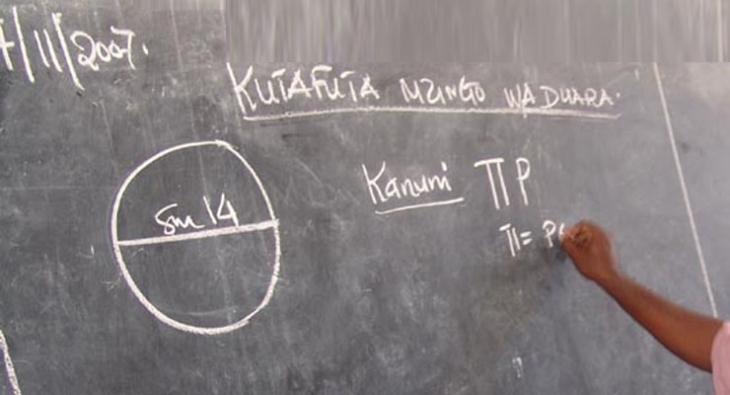 /11/2007.
KUTAFUTA MZINGO WA DUARA.
Kanuni ΠP
Sm 14
Π= P